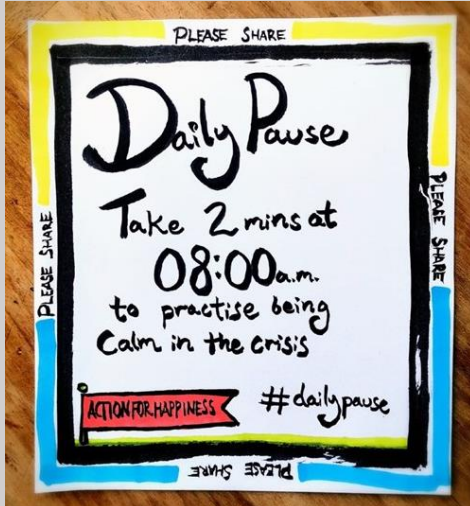 PLEASE SHARE
Daily Pause
Take 2 mins at
08:00 a.m.
to practise being
Calm in the crisis
ACTION FOR HAPPINESS
#dailypause
PLEASE SHARE
PLEASE SHARE
PLEASE SHARE